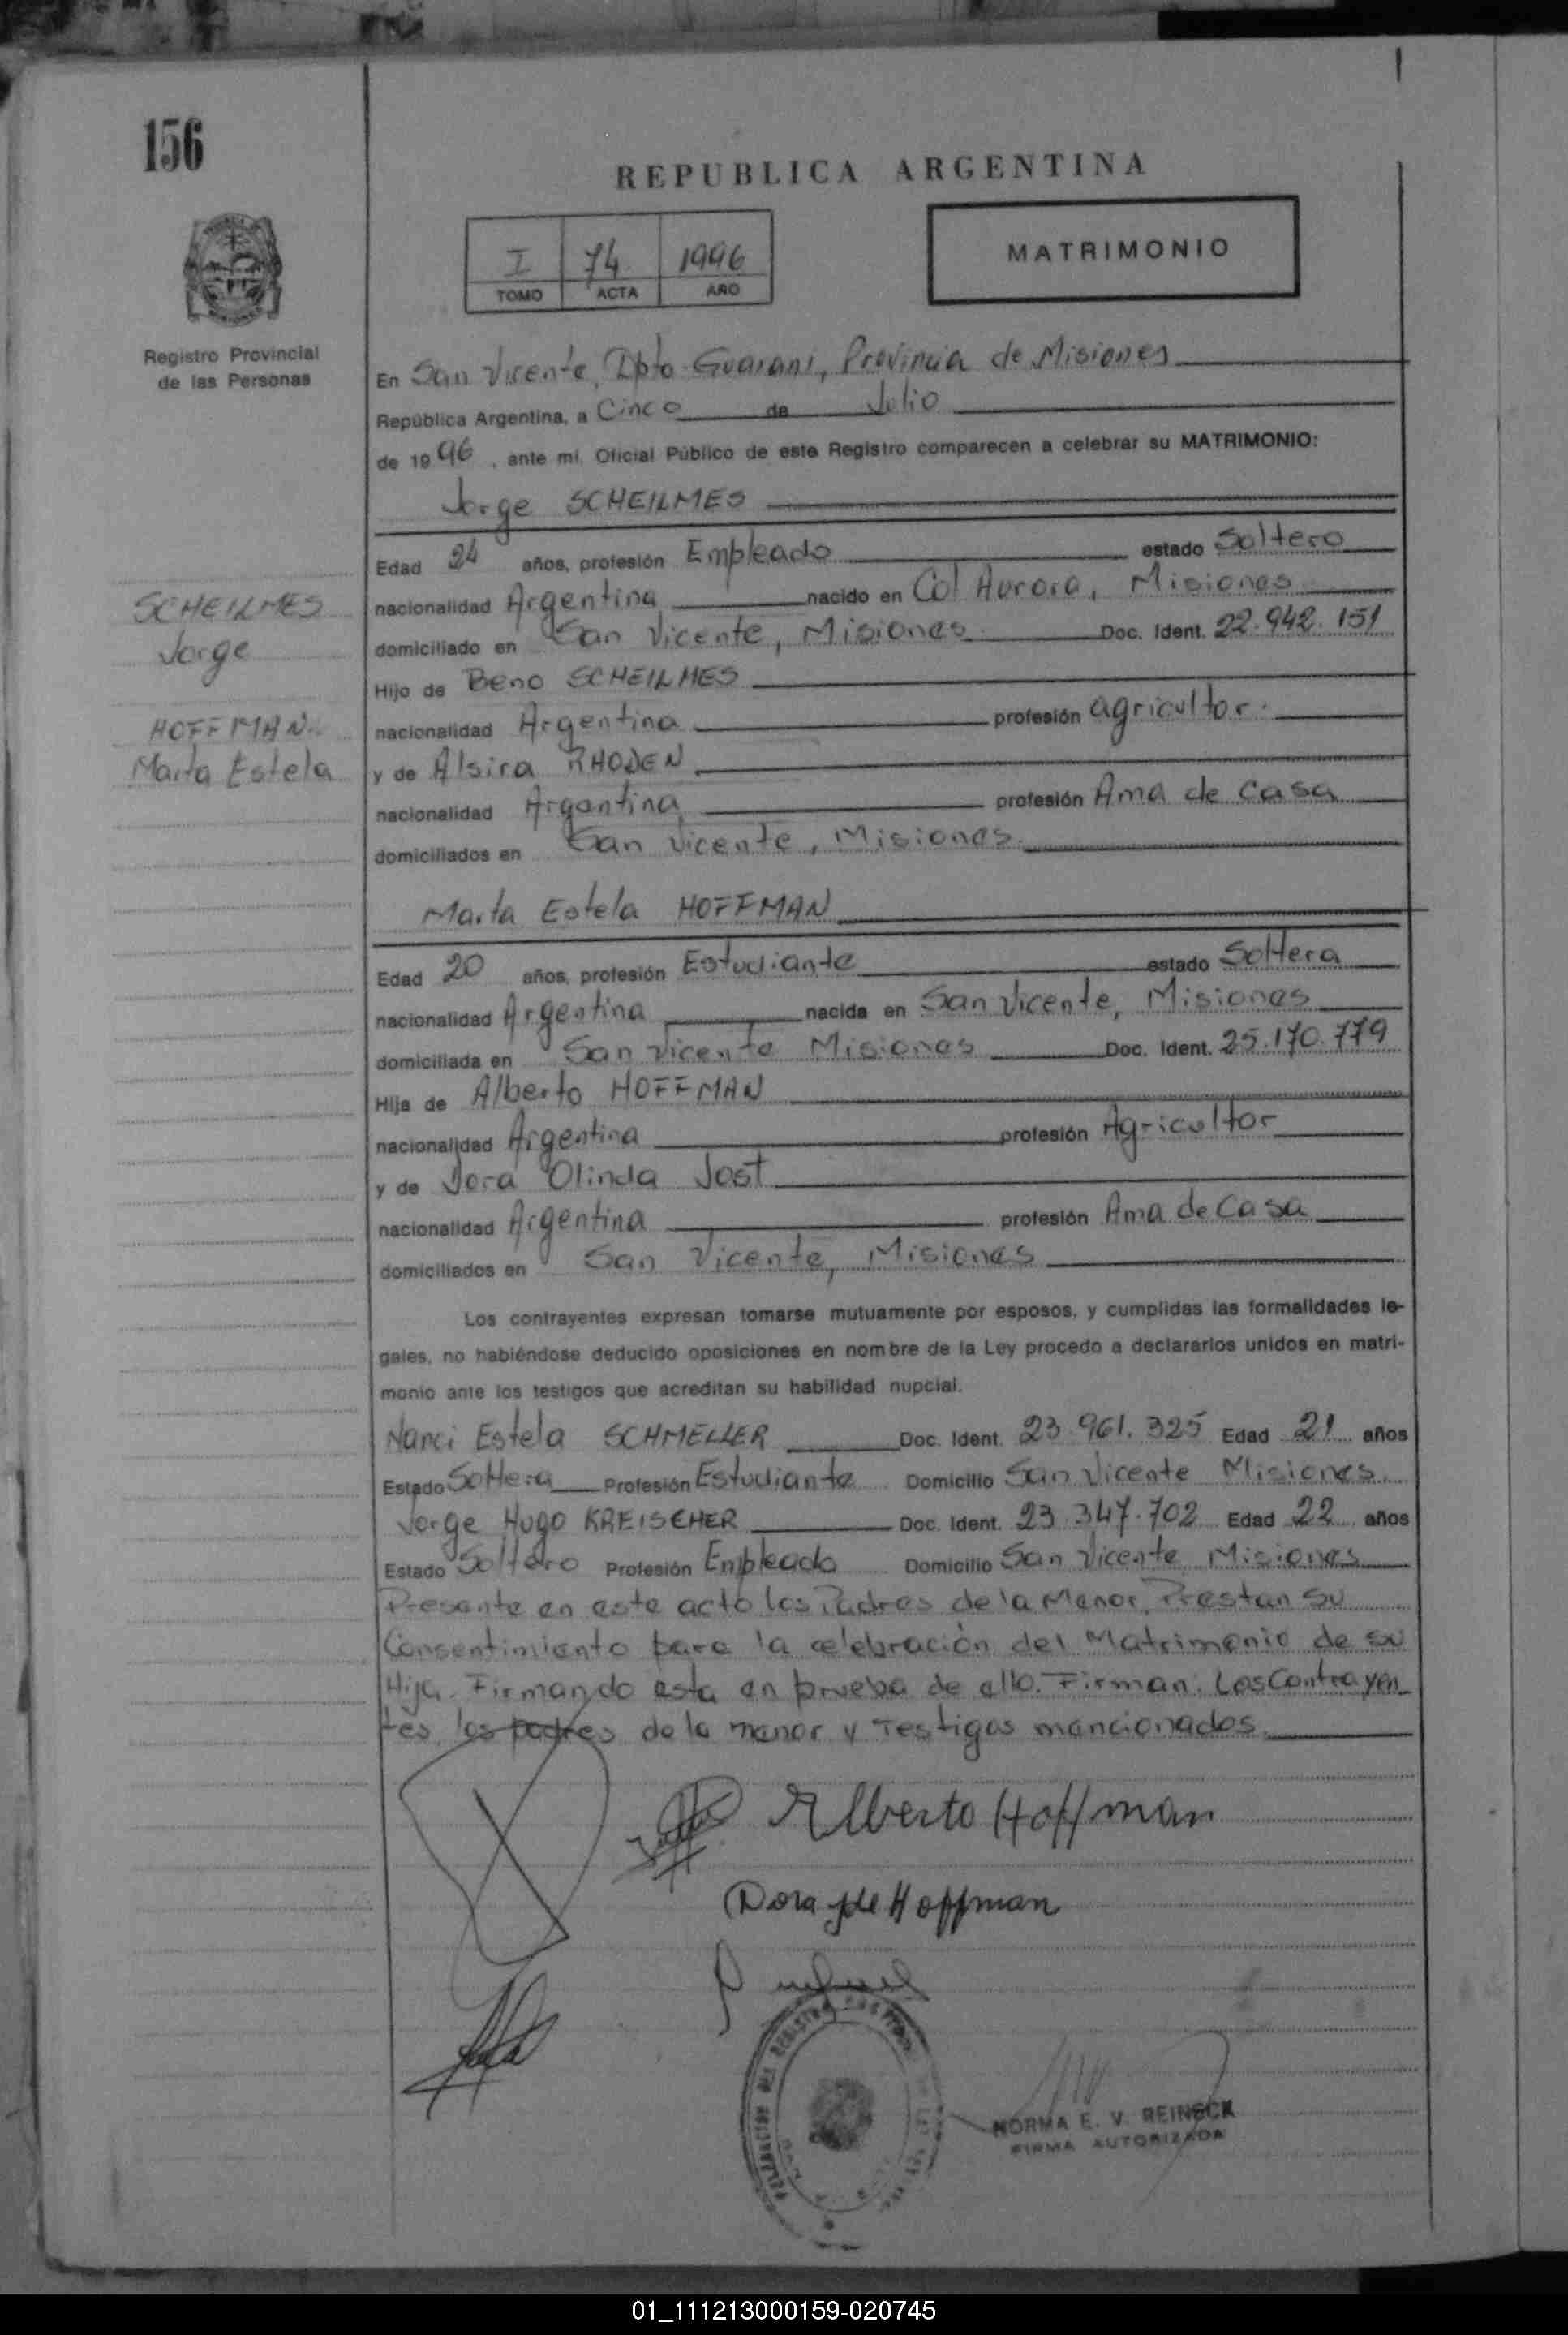 156
REPUBLICA ARGENTINA
I 74 1996
TOMO ACTA AÑO
MATRIMONIO
Registro Provincial
de las Personas
En San Vicente, Dpto Guarani, Provincia de Misiones
República Argentina, a Cinco de Julio
de 1996, ante mí, Oficial Público de este Registro comparecen a celebrar su MATRIMONIO:
Jorge SCHEILMES
Edad 24 años, profesión Empleado estado Soltero
nacionalidad Argentina nacido en Col Aurora, Misiones
domiciliado en San Vicente, Misiones Doc. Ident. 22.942.151
Hijo de Beno SCHEILMES
nacionalidad Argentina profesión agricultor.
y de Alsira RHODEN
nacionalidad Argentina profesión Ama de casa
domiciliados en San Vicente, Misiones.
SCHEILMES
Jorge
HOFFMAN
Marta Estela
Marta Estela HOFFMAN
Edad 20 años, profesión Estudiante estado Soltera
nacionalidad Argentina nacida en San Vicente, Misiones
domiciliada en San Vicente Misiones Doc. Ident. 25.170.779
Hija de Alberto HOFFMAN
nacionalidad Argentina profesión Agricultor
y de Dora Olinda Jost
nacionalidad Argentina profesión Ama de Casa
domiciliados en San Vicente, Misiones
Los contrayentes expresan tomarse mutuamente por esposos, y cumplidas las formalidades le-
gales, no habiéndose deducido oposiciones en nombre de la Ley procedo a declararlos unidos en matri-
monio ante los testigos que acreditan su habilidad nupcial.
Nanci Estela SCHMELLER Doc. Ident. 23.961.325 Edad 21 años
Estado Soltera Profesión Estudiante Domicilio San Vicente Misiones
Jorge Hugo KREISCHER Doc. Ident. 23.347.702 Edad 22 años
Estado Soltero Profesión Empleado Domicilio San Vicente Misiones
Presente en este acto los Padres de la Menor, Prestan su
Consentimiento para la celebración del Matrimonio de su
Hija. Firmando esta en prueba de ello. Firman: Los Contrayen
tes, los padres de la menor y Testigos mencionados.
Alberto Hoffman
Dora J de Hoffman
NORMA E. V. REINECK
FIRMA AUTORIZADA
01_111213000159-020745